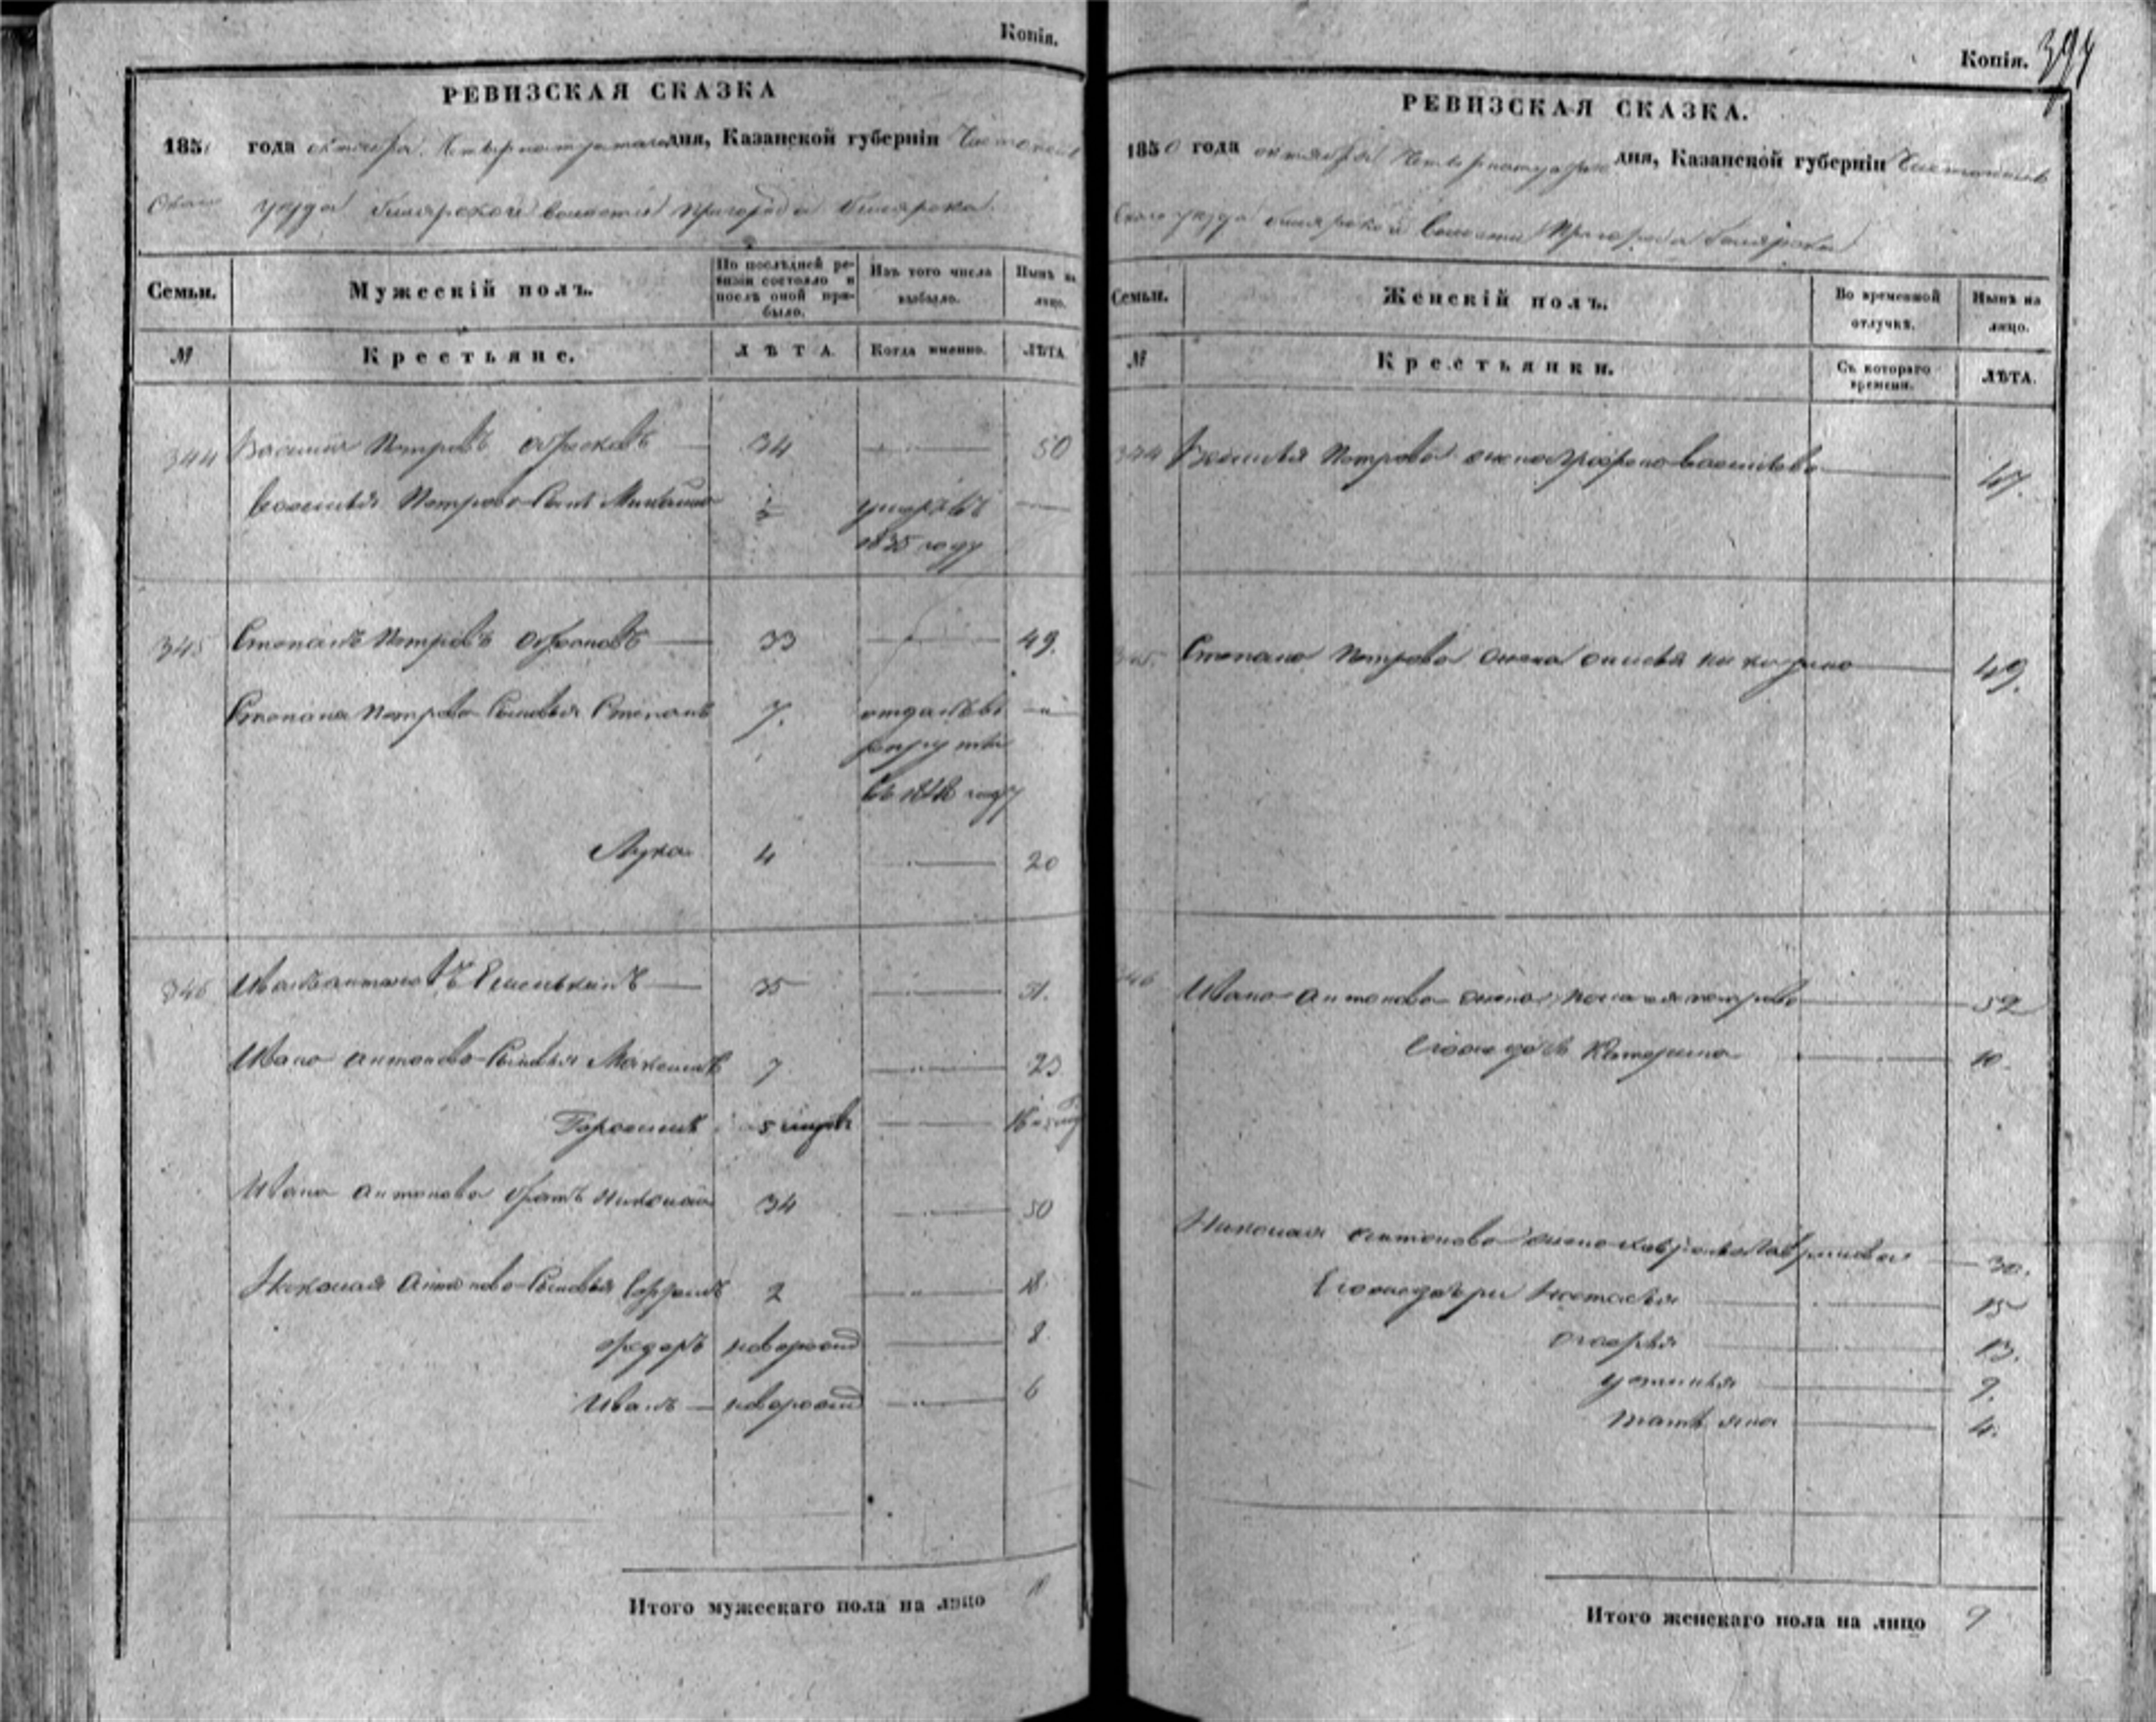 Копія.
РЕВИЗСКАЯ СКАЗКА
1850 года октября дня, Казанской губерніи Чистополь
скаго уѣзда Билярской волости Пригорода Билярска
Семьи.
Мужескій полъ.
По послѣдней ре-
визіи состояло и
послѣ оной при-
было.
Изъ того числа
выбыло.
Нынѣ на
лицо.
№
Крестьяне.
ЛѢТА.
Когда именно.
ЛѢТА
344 Василій Петровъ 34 50
Василья Петрова Сынъ Михайло умеръ
1835 году
345 Степанъ Петровъ 33 49.
Степана Петрова Сыновья Степанъ 7. отданъ въ
рекруты
въ 1848 году
Лука 4 20
346 Иванъ Антоновъ Емелькинъ 35 51.
Ивана Антонова Сыновья Максимъ 7 23
Герасимъ 5 мцовъ 16
Ивана Антонова братъ Николай 34 50
Николая Антонова Сыновья 2 18.
Федоръ новорожд 8.
Иванъ новорожд 6
Итого мужескаго пола на лицо
Копія. 394
РЕВИЗСКАЯ СКАЗКА.
1850 года октября дня, Казанской губерніи Чистополь
скаго уѣзда Билярской волости Пригорода Билярска
Семьи.
Женскій полъ.
Во временной
отлучкѣ.
Нынѣ на
лицо.
№
Крестьянки.
Съ котораго
времени.
ЛѢТА.
344 Василья Петрова жена Васильева 47.
345 Степана Петрова жена 49.
346 Ивана Антонова жена 52
Егоже дочь Катерина 10.
Николая Антонова жена Гаврилова 30.
Егоже дочери Настасья 15
Дарья 13.
Устинья 9.
Татьяна 4.
Итого женскаго пола на лицо 9